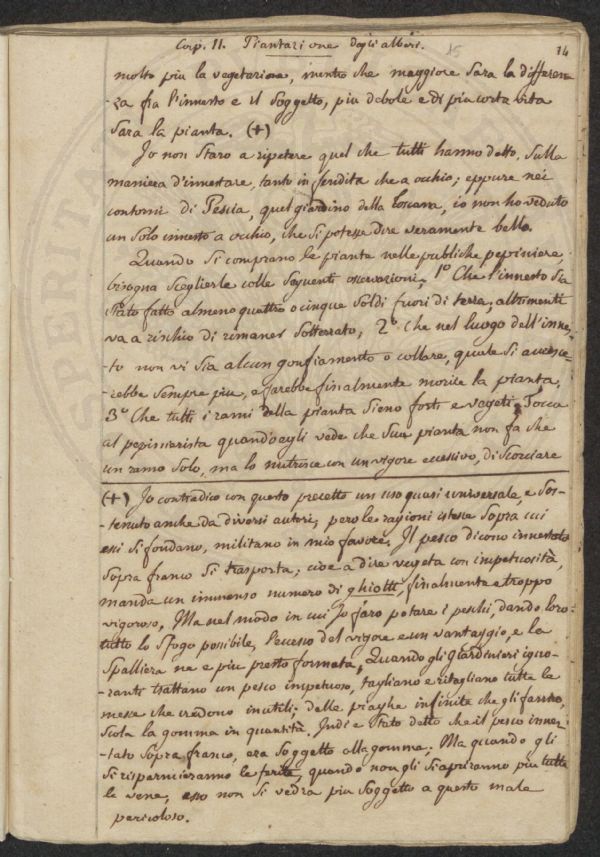 Cap. II. Piantazione degli alberi.
15
14
molto piu la vegetazione, mentre che maggiore sara la differen-
-za fra l'innesto e il Soggetto, piu debole e di piu corta vita
Sara la pianta. (+)
Jo non Staro a ripetere quel che tutti hanno detto, Sulla
maniera d'innestare, tanto in fenditta che a occhio; eppure nei
contorni di Pescia, quel giardino della Toscana, io non ho veduto
un Solo innesto a occhio, che si potesse dire veramente bello.
Quando Si comprano le piante nelle publiche pepiniere,
bisogna Sceglierle colle Seguenti osservazioni, 1º Che l'innesto Sia
Stato fatto almeno quattro o cinque Soldi fuori di terra, altrimenti
va a rischio di rimaner Sotterrato, 2º che nel luogo dell'inne-
to non vi Sia alcun gonfiamento o collare, quale Si accresce-
-rebbe Sempre piu, e farebbe finalmente morire la pianta,
3º Che tutti i rami della pianta Sieno forti e vegeti, Tocca
al pepinierista quando egli vede che Sua pianta non fa che
un ramo Solo, ma lo nutrisce con un vigore eccessivo, di Scorciare
(+) Jo contradico con questo precetto un uso quasi universale, e Sos-
-tenuto anche da diversi autori, pero le ragioni istesse Sopra cui
essi Si fondano, militano in mio favore, Il pesco dicono innestato
Sopra franco Si trasporta; cioe a dire vegeta con impetuosità,
manda un immenso numero di ghiotti, finalmente e troppo
vigoroso, Ma nel modo in cui Jo faro potare i peschi, dando loro
tutto lo Sfogo possibile, l'eccesso del vigore e un vantaggio, e la
Spalliera ne e piu presto formata, Quando gli Giardinieri igno-
-ranti trattano un pesco impetuoso, tagliano e ritagliano tutte le
messe che credono inutili; dalle piaghe infinite che gli fanno,
Scola la gomma in quantità. Indi e Stato detto che il pesco inne-
-tato Sopra franco, era Soggetto alla gomma; Ma quando gli
Si risparmieranno le ferite, quando non gli Si apriranno piu tutte
le vene, esso non Si vedra piu Soggetto a questo male
pericoloso.